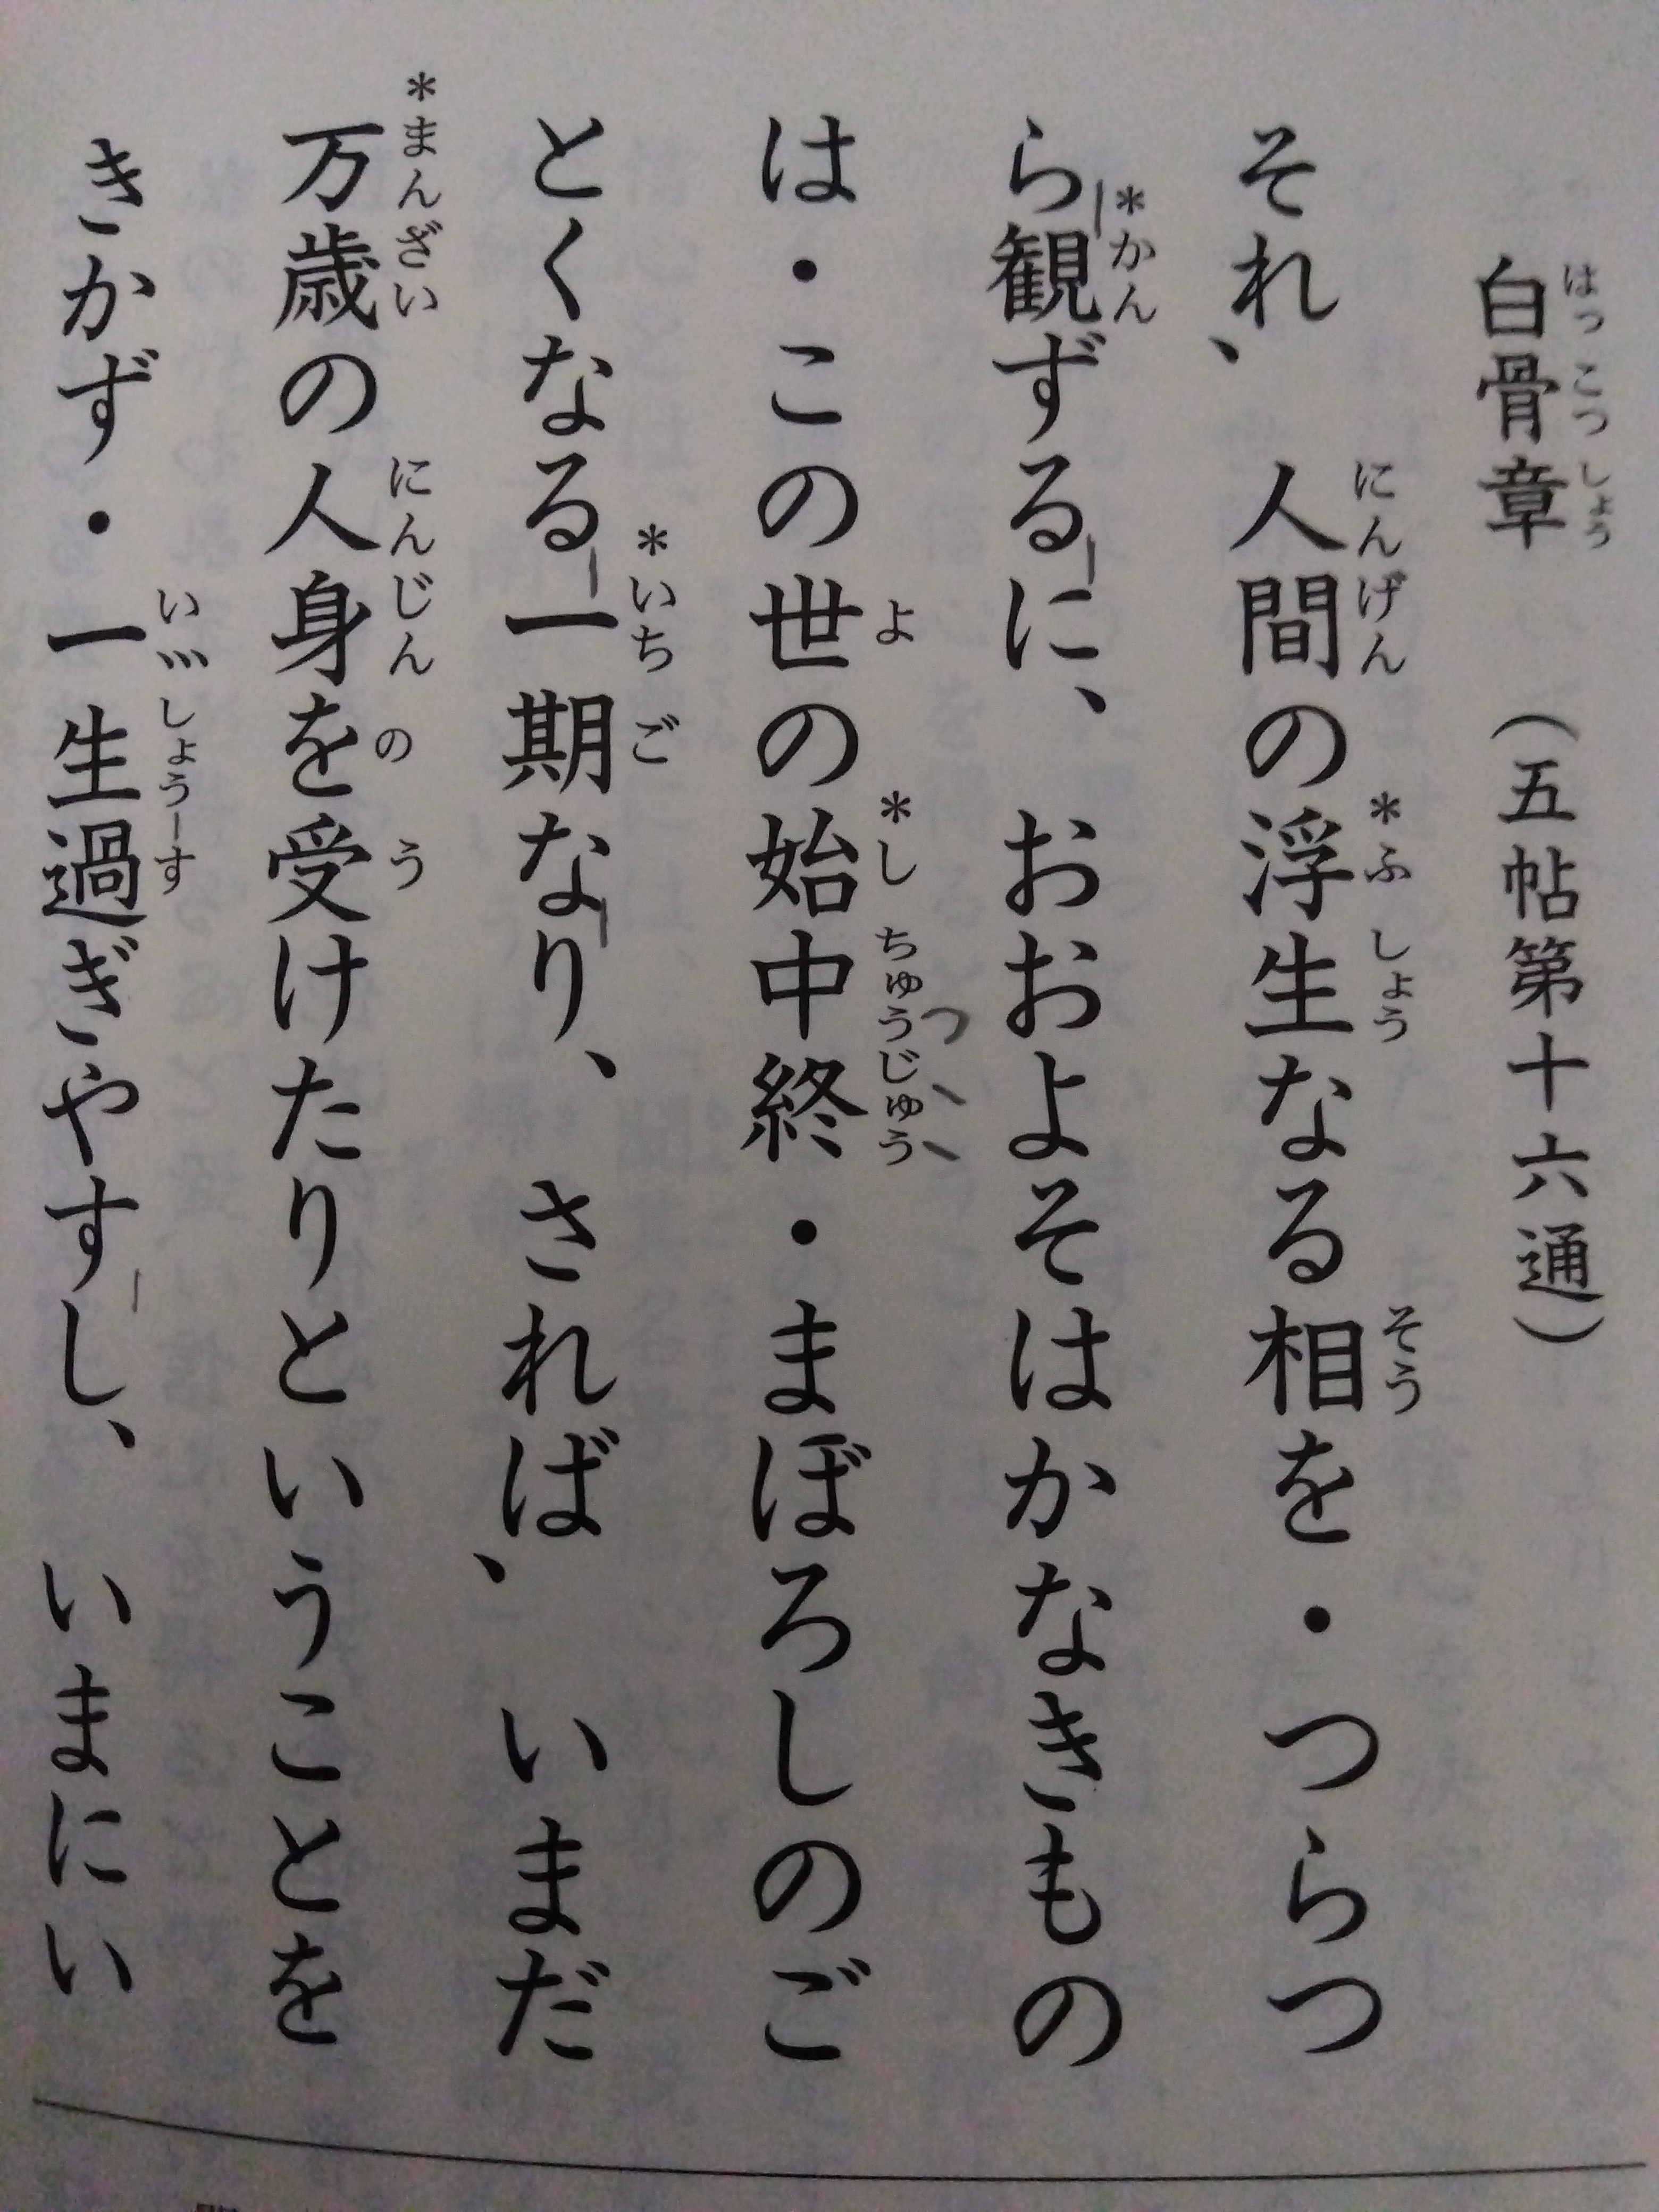 白骨章　（五帖第十六通）
それ、　人間の浮生なる相を・つらつ
ら観ずるに、　おおよそはかなきもの
は・この世の始中終・まぼろしのご
とくなる一期なり、　されば、　いまだ
万歳の人身を受けたりということを
きかず・一生過ぎやすし、　いまにい